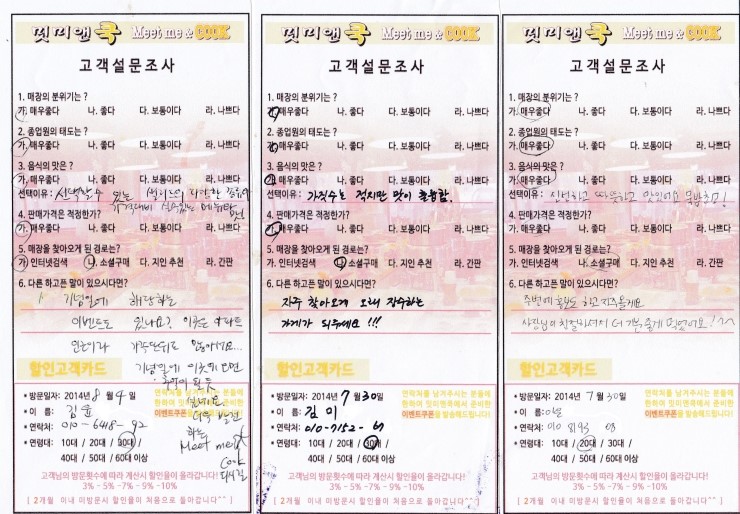 밋미앤쿡 Meet me & COOK
고객설문조사
1. 매장의 분위기는 ?
가. 매우좋다 나. 좋다 다. 보통이다 라. 나쁘다
2. 종업원의 태도는 ?
가. 매우좋다 나. 좋다 다. 보통이다 라. 나쁘다
3. 음식의 맛은 ?
가. 매우좋다 나. 좋다 다. 보통이다 라. 나쁘다
선택이유: 선택할수 있는 다양한
가격대비
4. 판매가격은 적정한가?
가. 매우좋다 나. 좋다 다. 보통이다 라. 나쁘다
5. 매장을 찾아오게 된 경로는?
가. 인터넷검색 나. 소셜구매 다. 지인 추천 라. 간판
6. 다른 하고픈 말이 있으시다면?
기념일에 해당하는
이벤트도 있나요? 이곳은 아파트
인근이라 가족단위로 많을거 같아요...
기념일에 이곳에 오면
더욱 발전
하는
Meet me &
Cook
되시길
할인고객카드
* 방문일자: 2014년 8월 4일
* 이 름: 김윤
* 연락처: 010-6418- 92
* 연령대: 10대 / 20대 / 30대 /
40대 / 50대 / 60대 이상
연락처를 남겨주시는 분들에
한하여 밋미앤쿡에서 준비한
이벤트쿠폰을 발송해드립니다!
고객님의 방문횟수에 따라 계산시 할인율이 올라갑니다!
3% - 5% -7% - 9% -10%
[ 2개월 이내 미방문시 할인율이 처음으로 돌아갑니다^^ ]
밋미앤쿡 Meet me & COOK
고객설문조사
1. 매장의 분위기는 ?
가. 매우좋다 나. 좋다 다. 보통이다 라. 나쁘다
2. 종업원의 태도는 ?
가. 매우좋다 나. 좋다 다. 보통이다 라. 나쁘다
3. 음식의 맛은 ?
가. 매우좋다 나. 좋다 다. 보통이다 라. 나쁘다
선택이유: 가짓수는 적지만 맛이 훌륭함.
4. 판매가격은 적정한가?
가. 매우좋다 나. 좋다 다. 보통이다 라. 나쁘다
5. 매장을 찾아오게 된 경로는?
가. 인터넷검색 나. 소셜구매 다. 지인 추천 라. 간판
6. 다른 하고픈 말이 있으시다면?
자주 찾아오게 오래 장수하는
가게가 되주세요 !!!
할인고객카드
* 방문일자: 2014년 7월 30일
* 이 름: 김이
* 연락처: 010-7152- 67
* 연령대: 10대 / 20대 / 30대 /
40대 / 50대 / 60대 이상
연락처를 남겨주시는 분들에
한하여 밋미앤쿡에서 준비한
이벤트쿠폰을 발송해드립니다!
고객님의 방문횟수에 따라 계산시 할인율이 올라갑니다!
3% - 5% -7% - 9% -10%
[ 2개월 이내 미방문시 할인율이 처음으로 돌아갑니다^^ ]
밋미앤쿡 Meet me & COOK
고객설문조사
1. 매장의 분위기는 ?
가. 매우좋다 나. 좋다 다. 보통이다 라. 나쁘다
2. 종업원의 태도는 ?
가. 매우좋다 나. 좋다 다. 보통이다 라. 나쁘다
3. 음식의 맛은 ?
가. 매우좋다 나. 좋다 다. 보통이다 라. 나쁘다
선택이유: 신선하고 따뜻하고 맛있어요
4. 판매가격은 적정한가?
가. 매우좋다 나. 좋다 다. 보통이다 라. 나쁘다
5. 매장을 찾아오게 된 경로는?
가. 인터넷검색 나. 소셜구매 다. 지인 추천 라. 간판
6. 다른 하고픈 말이 있으시다면?
주변에 홍보도 하고 자주올게요
사장님이 친절하셔서 더 기분 좋게 먹었어요!
할인고객카드
* 방문일자: 2014년 7월 30일
* 이 름:
* 연락처: 010 8193 08
* 연령대: 10대 / 20대 / 30대 /
40대 / 50대 / 60대 이상
연락처를 남겨주시는 분들에
한하여 밋미앤쿡에서 준비한
이벤트쿠폰을 발송해드립니다!
고객님의 방문횟수에 따라 계산시 할인율이 올라갑니다!
3% - 5% -7% - 9% -10%
[ 2개월 이내 미방문시 할인율이 처음으로 돌아갑니다^^ ]